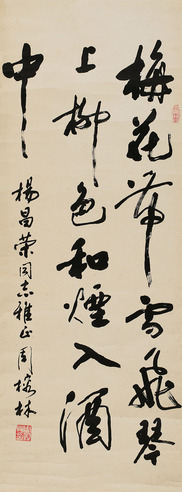 梅花带雪飞琴
上柳色和烟入酒
中
杨昌荣同志雅正周楼林